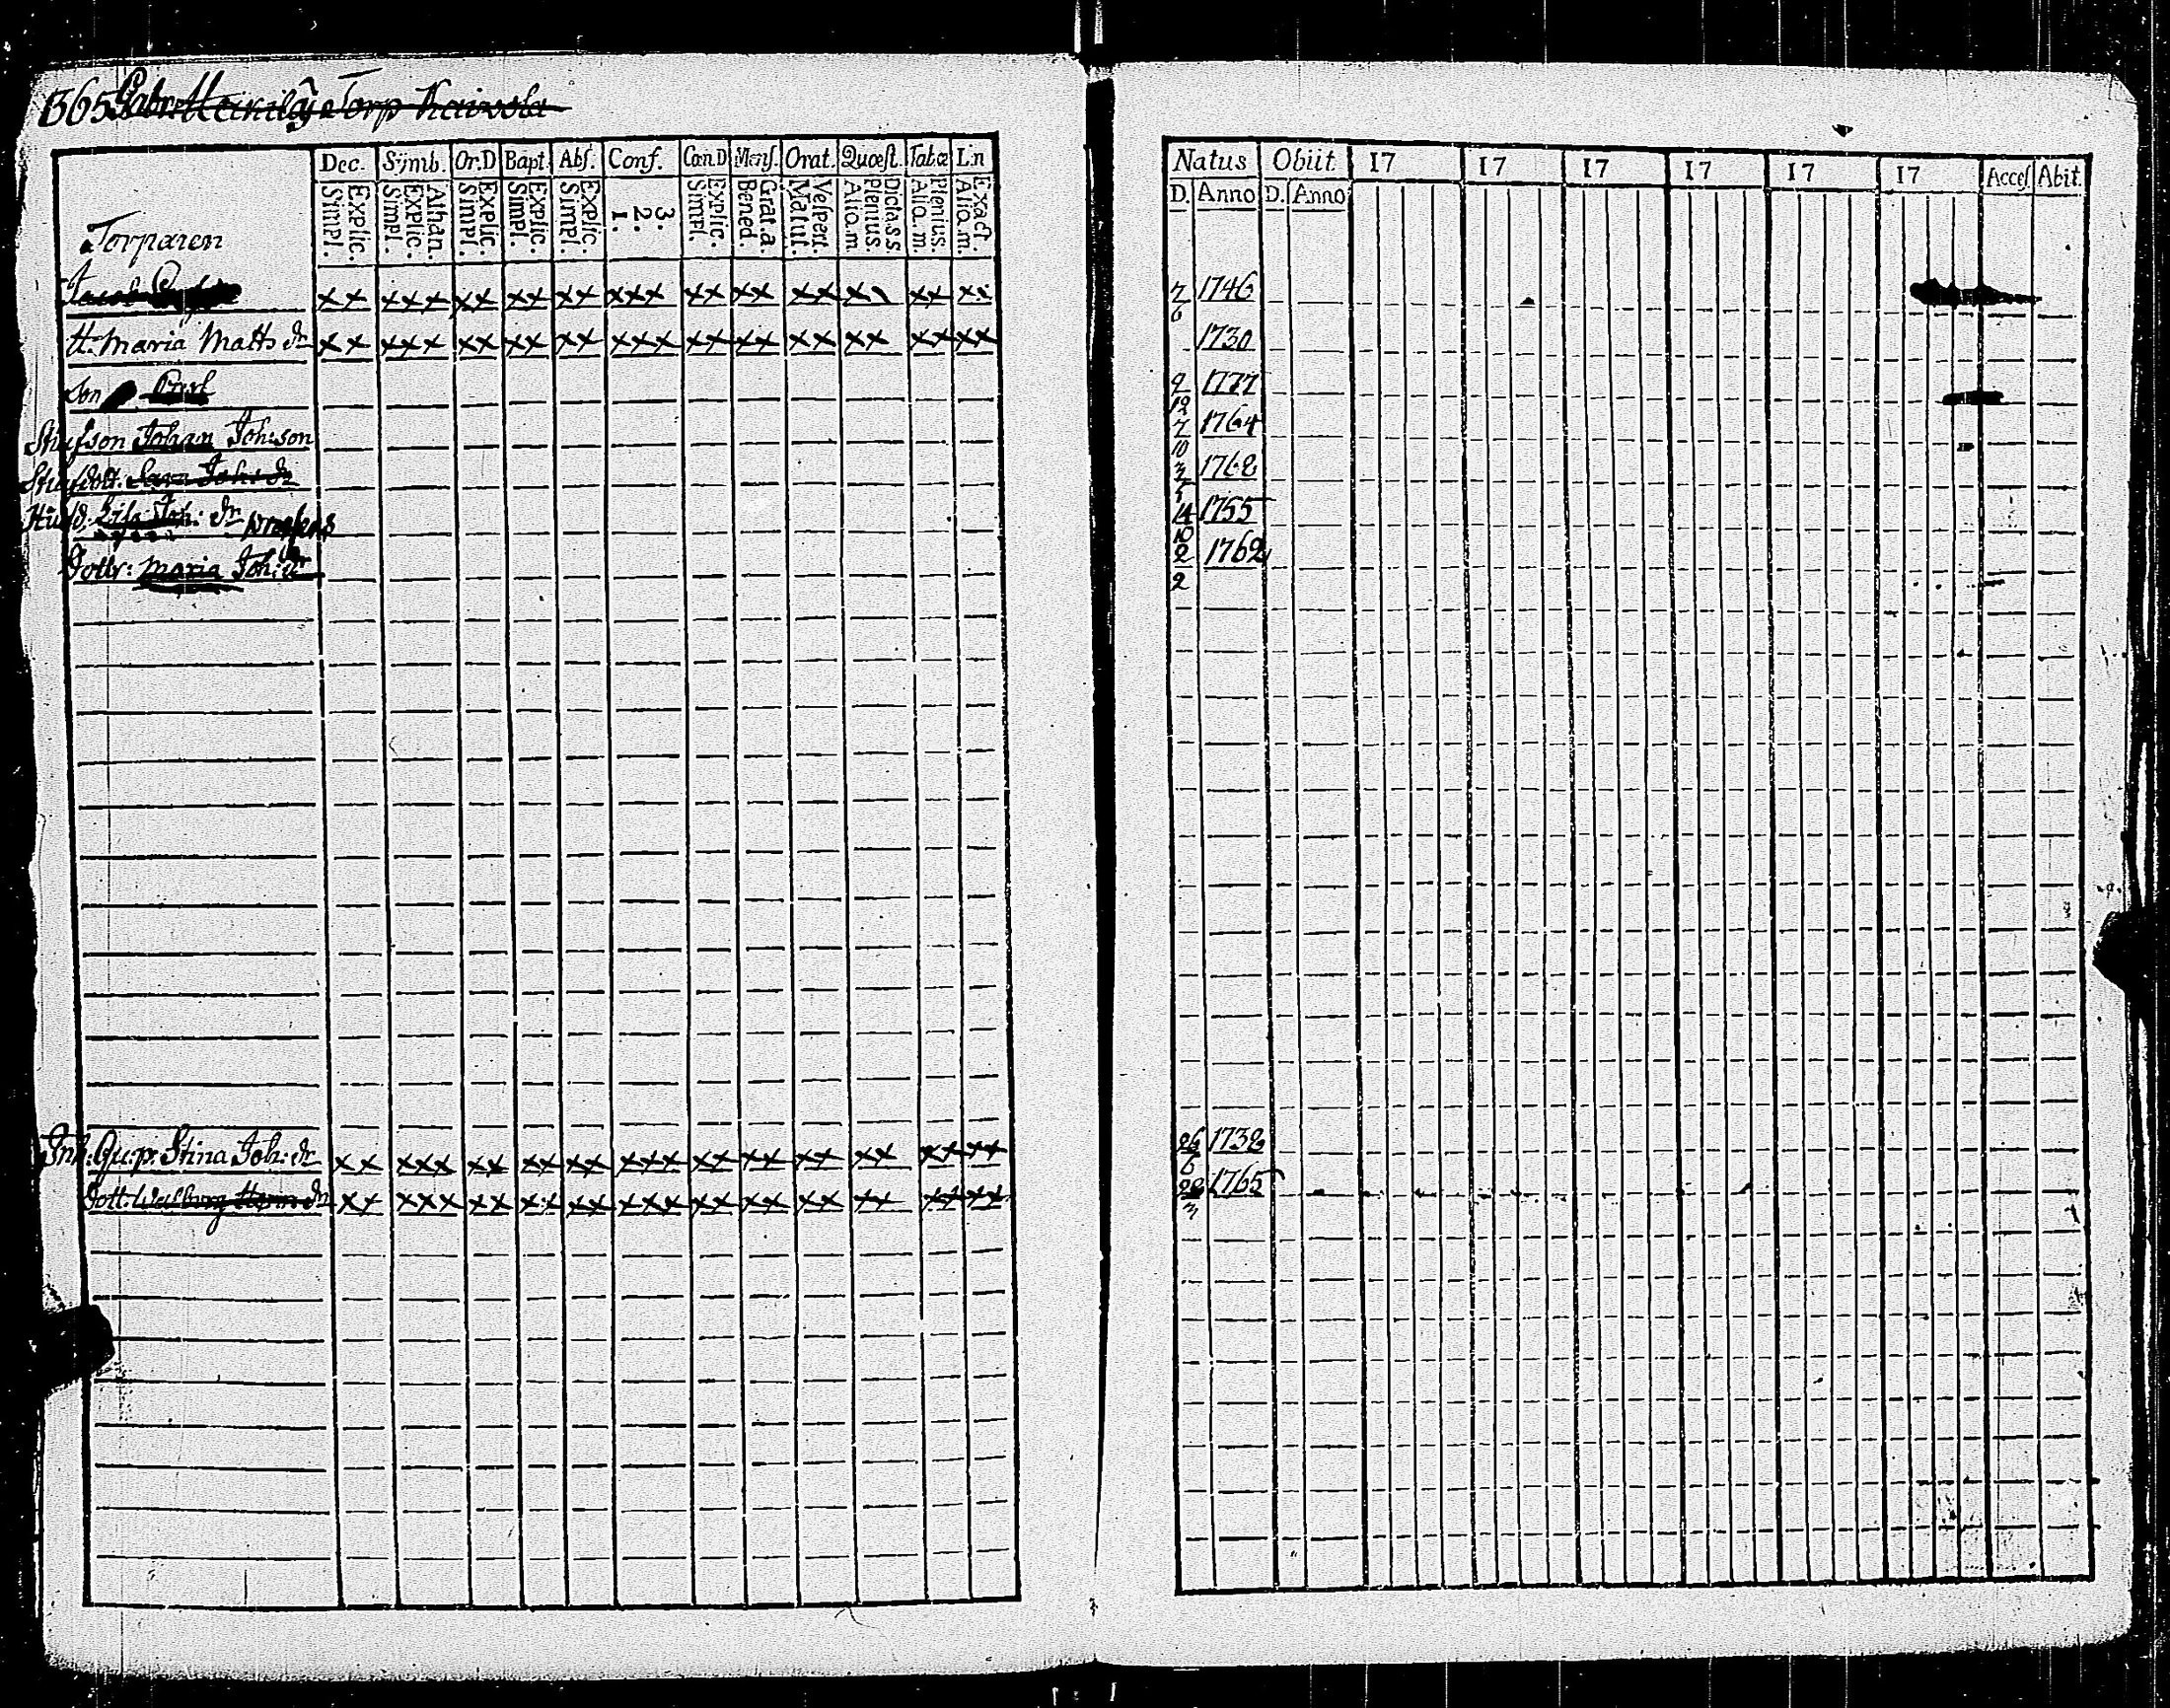 365 Torp Kaivola
Dec. Symb. Or.D Bapt. Abs. Conf. Cœn D Mens. Orat. Quæst. Tab.œ L:n
Simpl. Explic. Simpl. Explic. Athan. Simpl. Explic. Simpl. Explic. Simpl. Explic. 1. 2. 3. Simpl. Explic. Bened. Grat.a. Matut. Vespert. Alio.m. Plenius. Dicta.ss. Alia.m. Plenius. Alio.m. Exact.
Natus Obiit. 17 17 17 17 17 17 Acces Abit.
D. Anno D. Anno
Torparen
Jacob xx xxx xx xx xx xxx xx xx xx x xx xx 7 6 1746
H. Maria Matts dr xx xxx xx xx xx xxx xx xx xx xx xx xx 1730
Son 9 12 1777
Stiufson Johan Joh:son 7 10 1764
Stiufdott. Sara Joh: dr 3 1762
Lisa Joh: dr 14 10 1755
Dottr: Maria Joh: dr 2 2 1762
Inh. Gu:p: Stina Joh: dr xx xxx xx xx xx xxx xx xx xx xx xx xx 26 6 1732
Dott. Walborg dr xx xxx xx xx xx xxx xx xx xx xx xx xx 28 3 1765